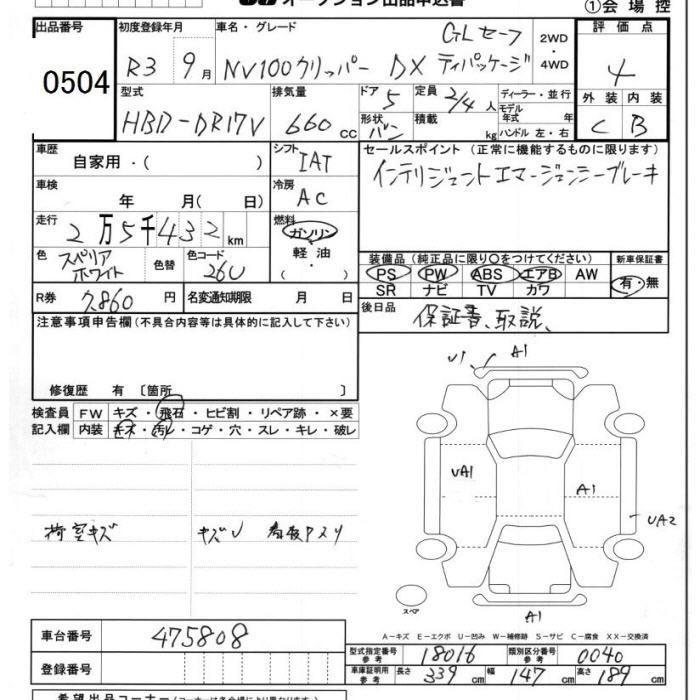 オークション出品申込書
①会場控
出品番号 初度登録年月 車名・グレード GLセーフ 2WD・4WD 評価点
0504 R3 9月 NV100クリッパー DX ティパッケージ 4
型式 排気量 ドア 5 定員 2/4人 ディーラー・並行 外装 内装
HBD-DR17V 660cc 形状 バン 積載 kg モデル年式 年式 ハンドル 左・右 C B
車歴 自家用・( ) シフト IAT セールスポイント (正常に機能するものに限ります)
車検 年 月(日) 冷房 AC インテリジェントエマージェンシーブレーキ
走行 2万5千432km 燃料 ガソリン 軽油・( )
色 スペリアホワイト 色替 色コード 26U 装備品 (純正品に限り〇をつけてください) 新車保証書
PS PW ABS エアB AW 有・無
SR ナビ TV カワ
R券 7,860円 名変通知期限 月 日 後日品 保証書、取説、
注意事項申告欄(不具合内容等は具体的に記入して下さい)
修復歴 有〔箇所 〕
検査員 FW キズ・飛石・ヒビ割・リペア跡・×要
記入欄 内装 キズ・汚レ・コゲ・穴・スレ・キレ・破レ
荷室キズ キズU
U1 A1
UA1 A1 UA2
スペア A1
A-キズ E-エクボ U-凹み W-補修跡 S-サビ C-腐食 XX-交換済
車台番号 475808
型式指定番号 参考 18016 類別区分番号 参考 0040
登録番号
車庫証明用 参考 長さ 339cm 幅 147cm 高さ 189cm
希望出品コーナー